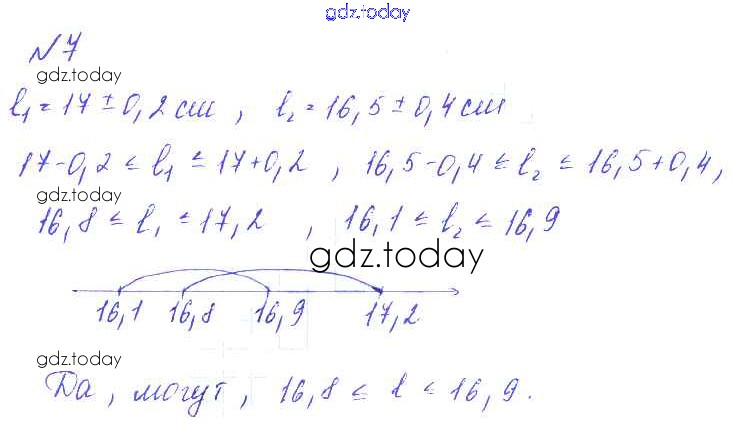 gdz.today
№7
gdz.today
l₁ = 17 ± 0,2 см , l₂ = 16,5 ± 0,4 см
17 - 0,2 ≤ l₁ ≤ 17 + 0,2 , 16,5 - 0,4 ≤ l₂ ≤ 16,5 + 0,4 ,
gdz.today
16,8 ≤ l₁ ≤ 17,2 , 16,1 ≤ l₂ ≤ 16,9
gdz.today
16,1 16,8 16,9 17,2
gdz.today
Да , могут , 16,8 ≤ l ≤ 16,9 .